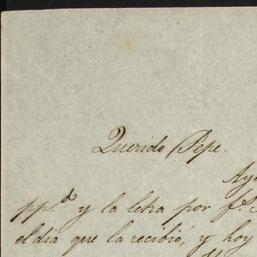 Querido Pepe.
Ay
pp.do y la letra por f.
el dia que la recibió, y hoy